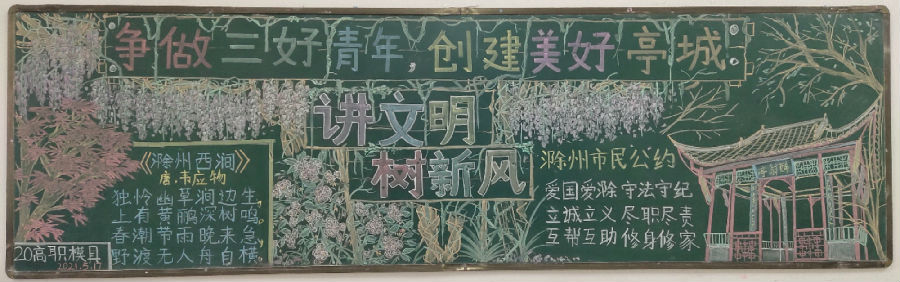 争做三好青年,创建美好亭城
讲文明
树新风
《滁州西涧》
唐·韦应物
独怜幽草涧边生,
上有黄鹂深树鸣,
春潮带雨晚来急,
野渡无人舟自横。
20高职模具
2021.5.17
滁州市民公约
爱国爱滁 守法守纪
立城立义 尽职尽责
互帮互助 修身修家